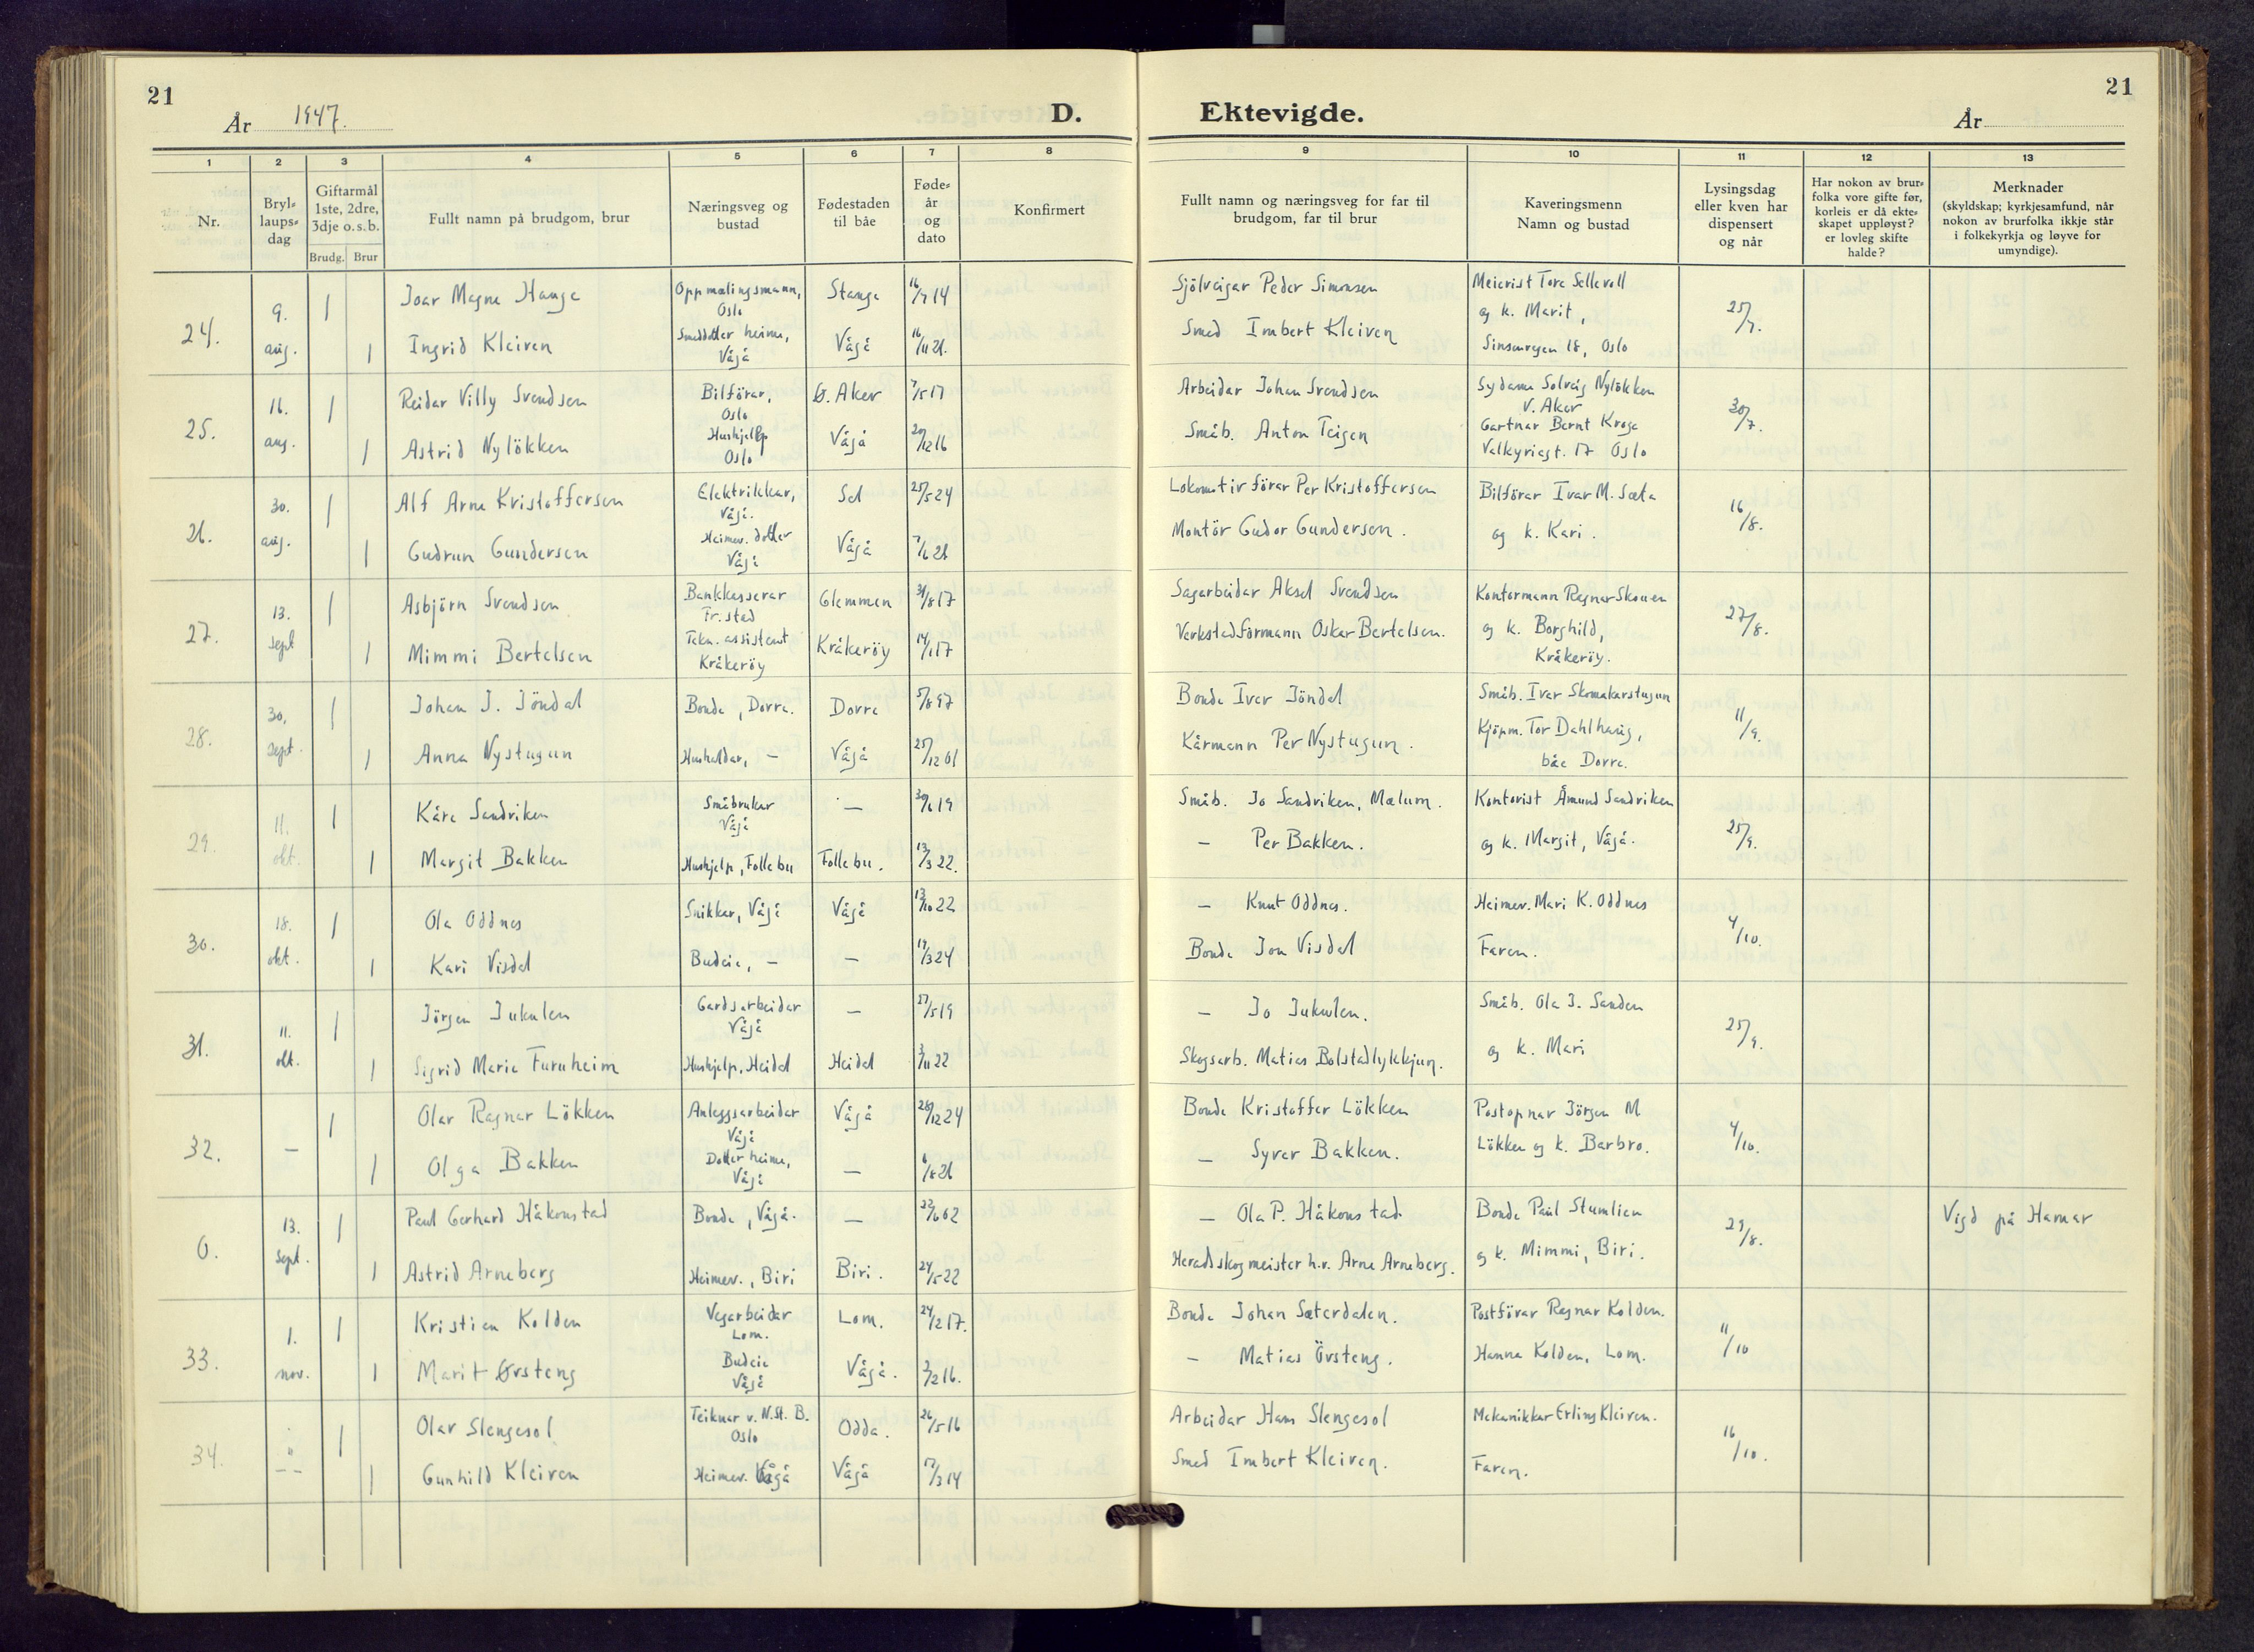 21
År 1947.
D. Ektevigde.
År
21
1 2 3 4 5 6 7 8 9 10 11 12 13
Nr.
Bryl-
laups-
dag
Giftarmål
1ste, 2dre,
3dje o. s. b.
Brudg. Brur
Fullt namn på brudgom, brur
Næringsveg og
bustad
Fødestaden
til båe
Føde-
år
og
dato
Konfirmert
Fullt namn og næringsveg for far til
brudgom, far til brur
Kaveringsmenn
Namn og bustad
Lysingsdag
eller kven har
dispensert
og når
Har nokon av brur-
folka vore gifte før,
korleis er då ekte-
skapet uppløyst?
er lovleg skifte
halde?
Merknader
(skyldskap; kyrkjesamfund, når
nokon av brurfolka ikkje står
i folkekyrkja og løyve for
umyndige).
24. 9. aug.
1 Joar Magne Hauge Oppmalingsmann, Oslo Stange 16/7 14 Sjölveigar Peder Simonsen
1 Ingrid Kleiven Smeddotter heime, Vågå Vågå 16/11 21. Smed Imbert Kleiven
Meierist Tore Sellevoll
og k. Marit,
Sinsenvegen 18, Oslo
25/7.
25. 16. aug.
1 Reidar Villy Svendsen Bilförar, Oslo Ö. Aker 7/5 17 Arbeidar Johan Svendsen
1 Astrid Nylökken Hushjelp Oslo Vågå 20/12 16 Småb. Anton Teigen
Sydame Solveig Nylökken
V. Aker
Gartnar Bernt Kroge
Valkyriegt. 17 Oslo
30/7.
26. 30. aug.
1 Alf Arne Kristoffersen Elektrikkar, Vågå. Sel 25/5 24 Lokomotivförar Per Kristoffersen
1 Gudrun Gundersen Heimev. dotter Vågå Vågå 7/6 28 Montör Gudor Gundersen.
Bilförar Ivar M. Sæta
og k. Kari.
16/8.
27. 13. sept
1 Asbjörn Svendsen Bankkasserar Fr.stad Glemmen 31/8 17 Sagarbeidar Aksel Svendsen
1 Mimmi Bertelsen Tekn. assistent Kråkeröy Kråkeröy 14/1 17 Verkstadformann Oskar Bertelsen.
Kontormann Ragnar Skouen
og k. Borghild,
Kråkeröy.
27/8.
28. 30. sept.
1 Johan J. Jöndal Bonde, Dovre. Dovre 5/8 97 Bonde Iver Jöndal
1 Anna Nystugun Hushaldar, — Vågå 25/12 01 Kårmann Per Nystugun.
Småb. Ivar Skomakarstugun
Kjöpm. Tor Dahlhaug,
båe Dovre.
11/9.
29. 11. okt.
1 Kåre Sandviken Småbrukar Vågå — 30/6 19 Småb. Jo Sandviken, Mælum.
1 Margit Bakken Hushjelp, Follebu Follebu. 13/3 22. — Per Bakken.
Kontorist Åmund Sandviken
og k. Margit, Vågå.
25/9.
30. 18. okt.
1 Ola Oddnes Snikkar, Vågå Vågå 13/10 22 — Knut Oddnes.
1 Kari Visdal Budeie, — — 19/3 24 Bonde Jon Visdal
Heimev. Mari K. Oddnes
Faren.
4/10.
31. 11. okt.
1 Jörgen Jukulen Gardsarbeidar Vågå — 27/5 19 — Jo Jukulen.
1 Sigrid Marie Furuheim Hushjelp, Heidal Heidal 3/11 22 Skogsarb. Matias Bolstadlykkjun.
Småb. Ola J. Sanden
og k. Mari
25/9.
32. —
1 Olav Ragnar Lökken Anleggsarbeidar Vågå Vågå 28/12 24 Bonde Kristoffer Lökken
1 Olga Bakken Dotter heime, Vågå — 6/8 26 — Syver Bakken.
Postopnar Jörgen M
Lökken og k. Barbro.
4/10.
0. 13. sept.
1 Paul Gerhard Håkonstad Bonde, Vågå. — 22/6 02 — Ola P. Håkonstad
1 Astrid Arneberg Heimev., Biri Biri. 24/5 22 Heradsskogmeister h.v. Arne Arneberg.
Bonde Paul Stumlien
og k. Mimmi, Biri.
29/8.
Vigd på Hamar
33. 1. nov.
1 Kristian Kolden Vegarbeidar Lom. Lom. 24/12 17. Bonde Johan Sæterdalen.
1 Marit Örsteng Budeie Vågå Vågå. 3/2 16. — Matias Örsteng.
Postförar Ragnar Kolden.
Hanna Kolden, Lom.
11/10
34. " --
1 Olav Slengesol Teiknar v. N.St. B. Oslo Odda. 26/5 16 Arbeidar Hans Slengesol
1 Gunhild Kleiven Heimev. Vågå Vågå 17/3 14 Smed Imbert Kleiven.
Mekanikkar Erling Kleiven.
Faren.
16/10.